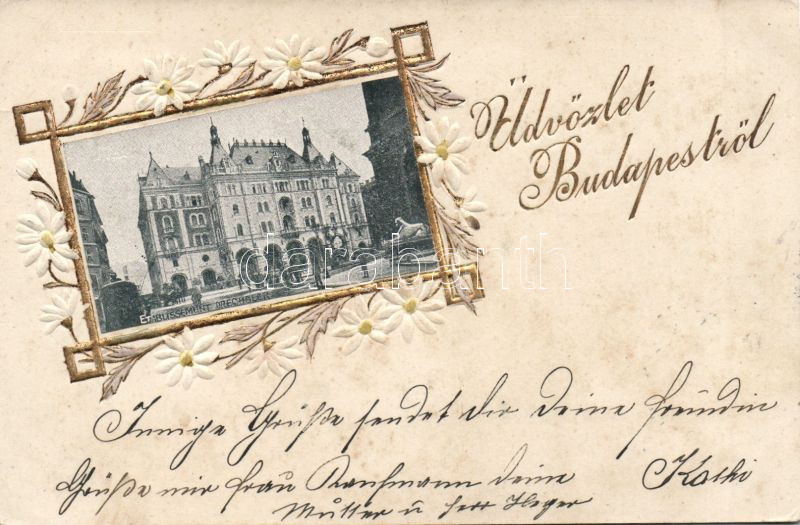 Üdvözlet
Budapestről
ETABLISSEMENT DRECHSLER
darabanth
Innige Grüße sendet Dir Deine freundin
Kathi
Grüße mir frau Kaufmann deine
Mutter u herr Heger